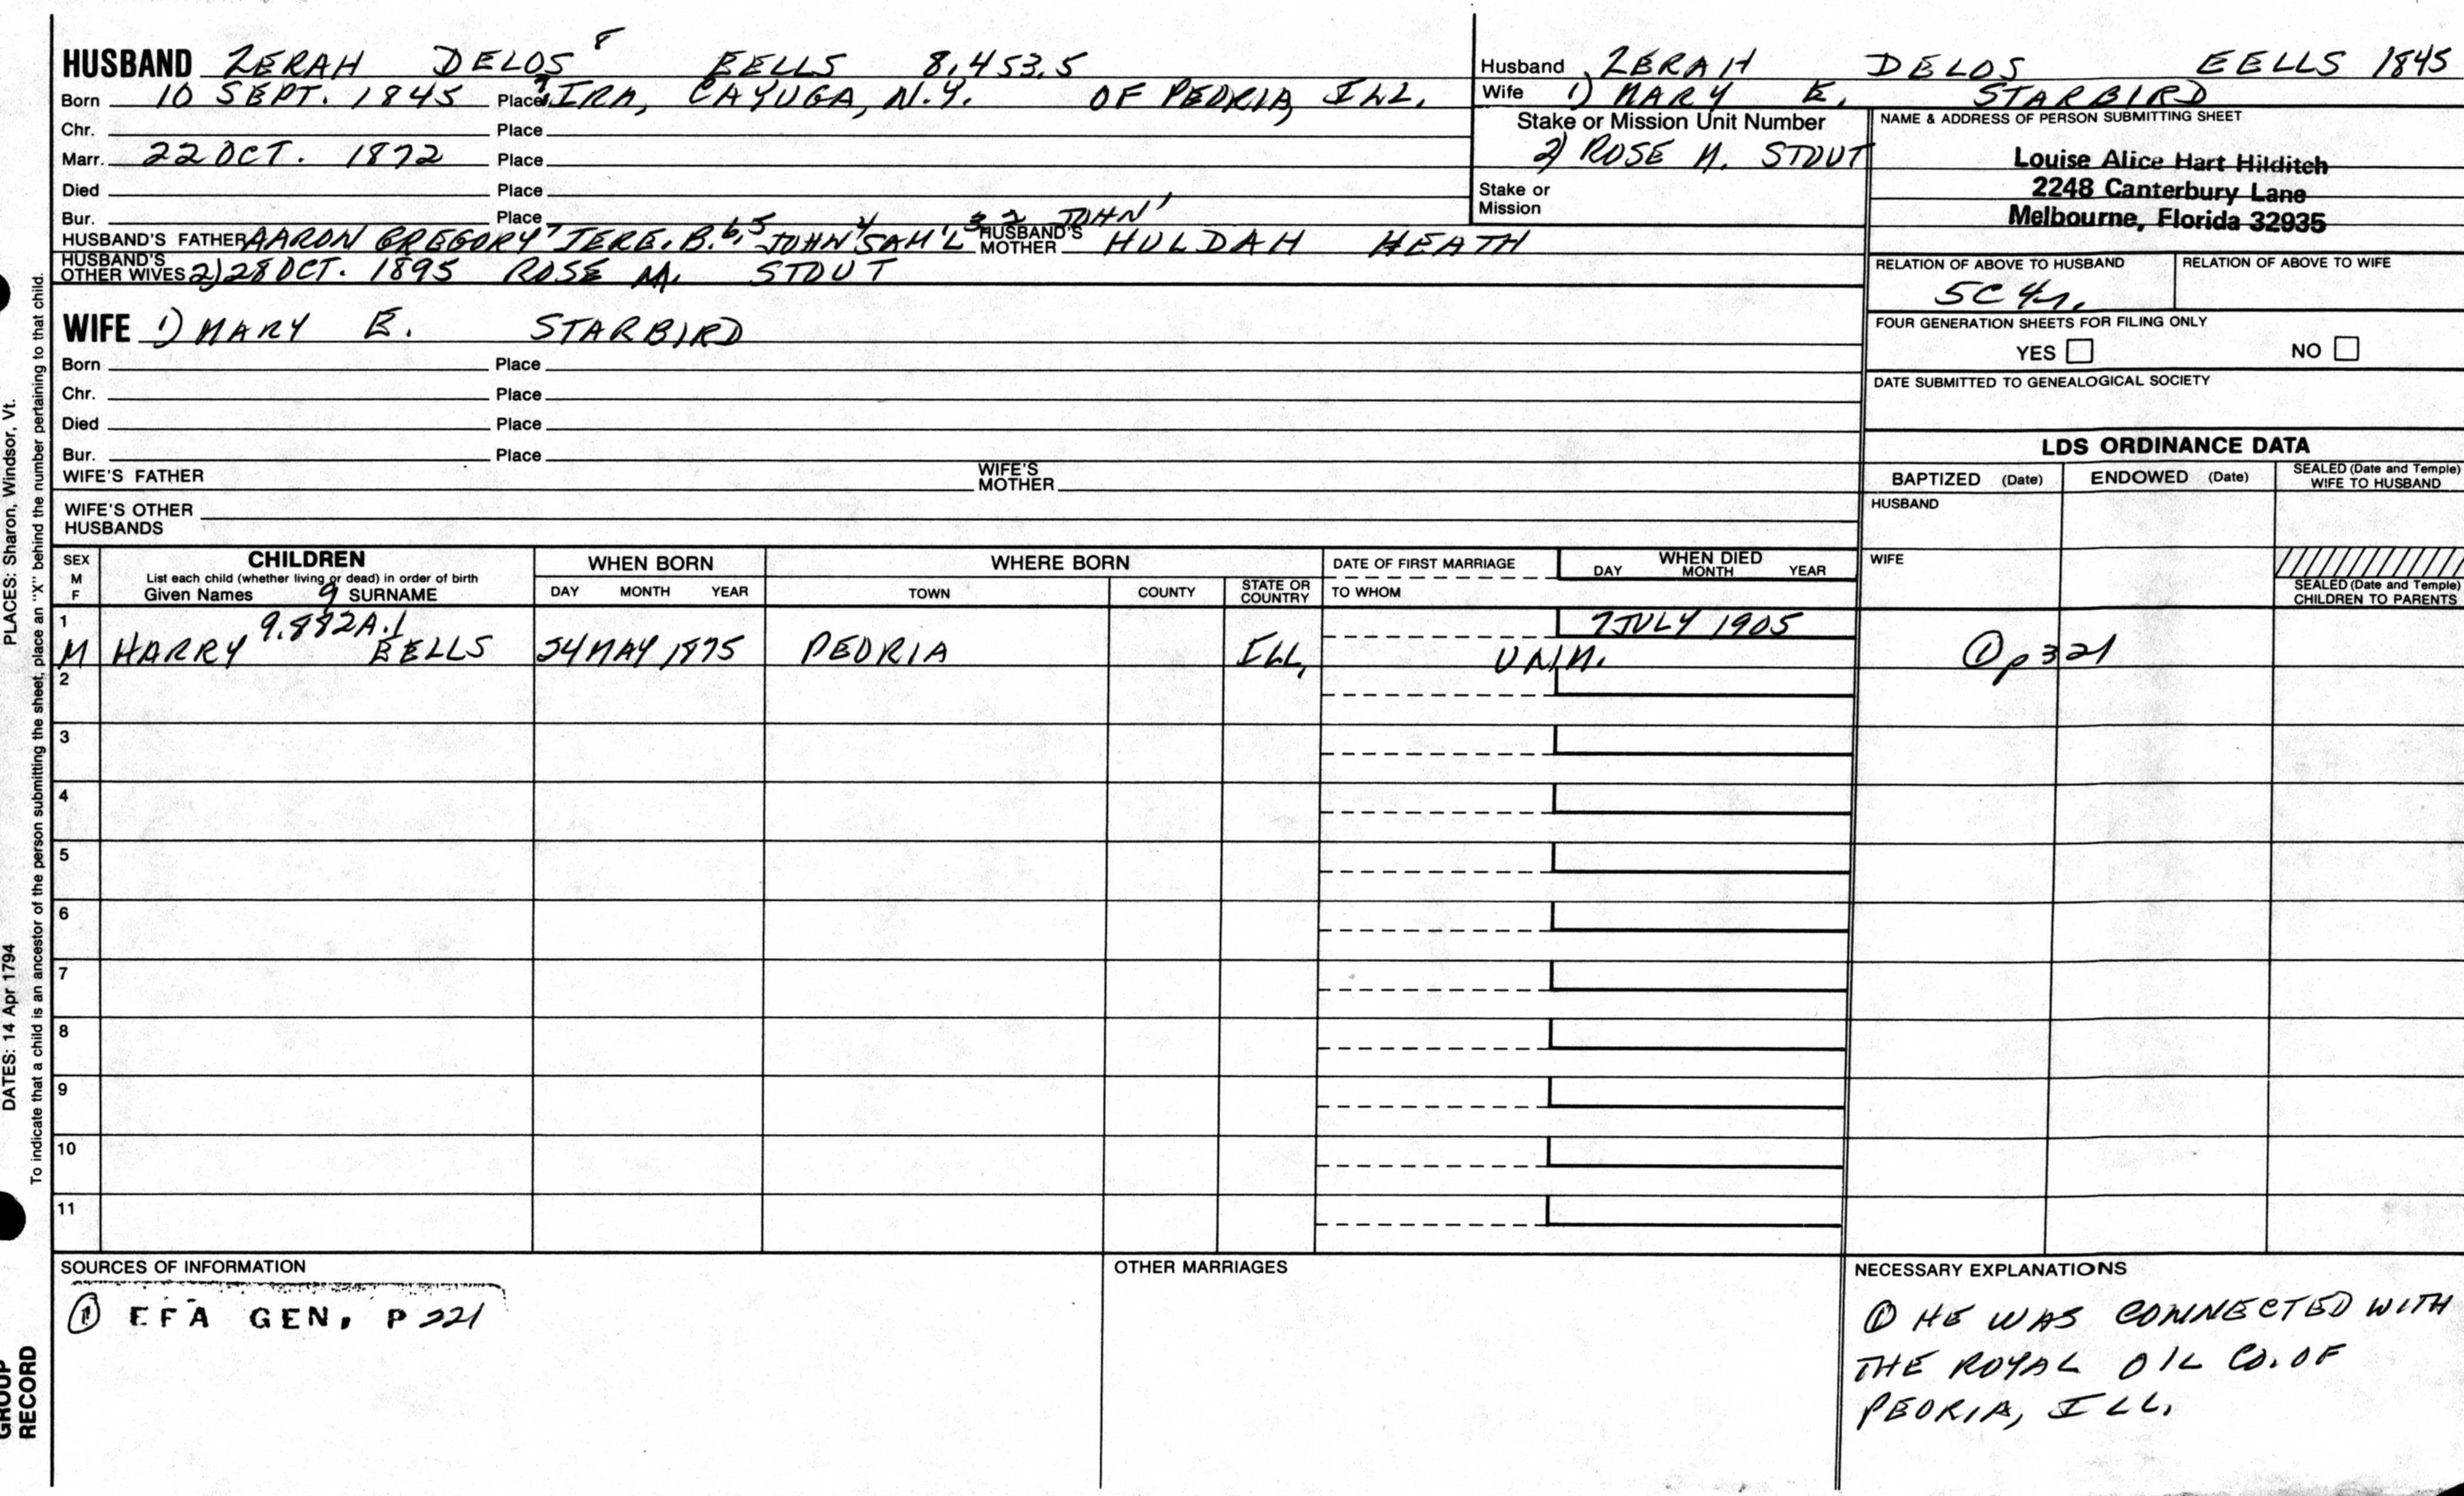 HUSBAND ZERAH DELOS 8 EELLS 8,453.5
Born 10 SEPT. 1845 Place ? IRA, CAYUGA, N.Y. OF PEORIA, ILL.
Chr. Place
Marr. 22 OCT. 1872 Place
Died Place
Bur. Place
HUSBAND'S FATHER AARON GREGORY 7 JERE. B. 6, 5 JOHN 4 SAM'L 3 2 JOHN 1 HUSBAND'S MOTHER HULDAH HEATH
HUSBAND'S OTHER WIVES 2) 28 OCT. 1895 ROSE M. STOUT
WIFE 1) MARY E. STARBIRD
Born Place
Chr. Place
Died Place
Bur. Place
WIFE'S FATHER WIFE'S MOTHER
WIFE'S OTHER HUSBANDS
Husband ZERAH DELOS EELLS 1845
Wife 1) MARY E. STARBIRD
Stake or Mission Unit Number
2) ROSE M. STOUT
Stake or Mission
NAME & ADDRESS OF PERSON SUBMITTING SHEET
Louise Alice Hart Hilditch
2248 Canterbury Lane
Melbourne, Florida 32935
RELATION OF ABOVE TO HUSBAND RELATION OF ABOVE TO WIFE
5C 4r.
FOUR GENERATION SHEETS FOR FILING ONLY
YES NO
DATE SUBMITTED TO GENEALOGICAL SOCIETY
LDS ORDINANCE DATA
BAPTIZED (Date) ENDOWED (Date) SEALED (Date and Temple) WIFE TO HUSBAND
HUSBAND
WIFE
SEALED (Date and Temple) CHILDREN TO PARENTS
SEX M F
CHILDREN
List each child (whether living or dead) in order of birth
Given Names 9 SURNAME
WHEN BORN
DAY MONTH YEAR
WHERE BORN
TOWN COUNTY STATE OR COUNTRY
DATE OF FIRST MARRIAGE
TO WHOM
WHEN DIED
DAY MONTH YEAR
1 9.882A.1 7 JULY 1905
M HARRY EELLS 24 MAY 1875 PEORIA ILL, UNM. ① p321
2
3
4
5
6
7
8
9
10
11
SOURCES OF INFORMATION
① EFA GEN, P 221
OTHER MARRIAGES
NECESSARY EXPLANATIONS
① HE WAS CONNECTED WITH
THE ROYAL OIL CO. OF
PEORIA, ILL.
PLACES: Sharon, Windsor, Vt.
DATES: 14 Apr 1794
To indicate that a child is an ancestor of the person submitting the sheet, place an "X" behind the number pertaining to that child.
GROUP
RECORD